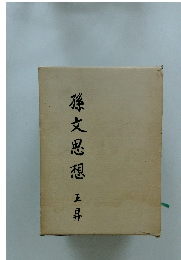 孫文思想
王昇